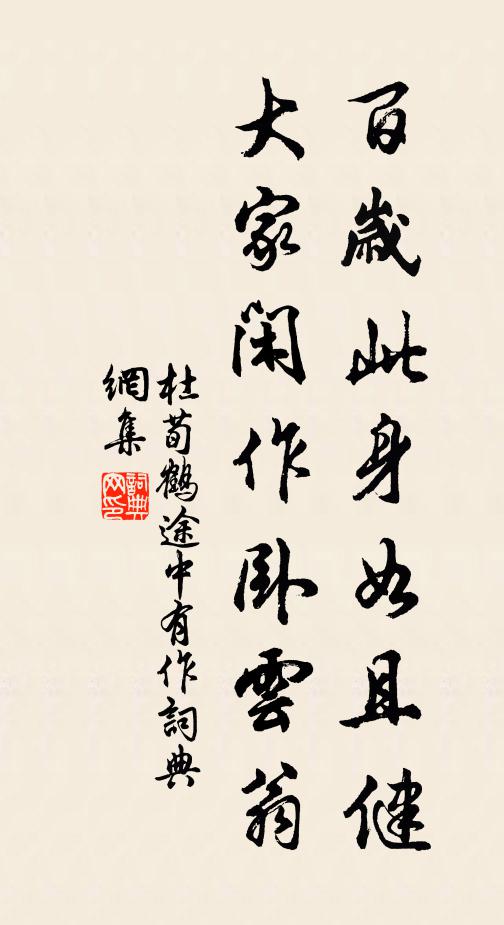 百歲此身如且健
大家閑作臥雲翁
杜荀鶴途中有作詞典
網集
詞典
网印